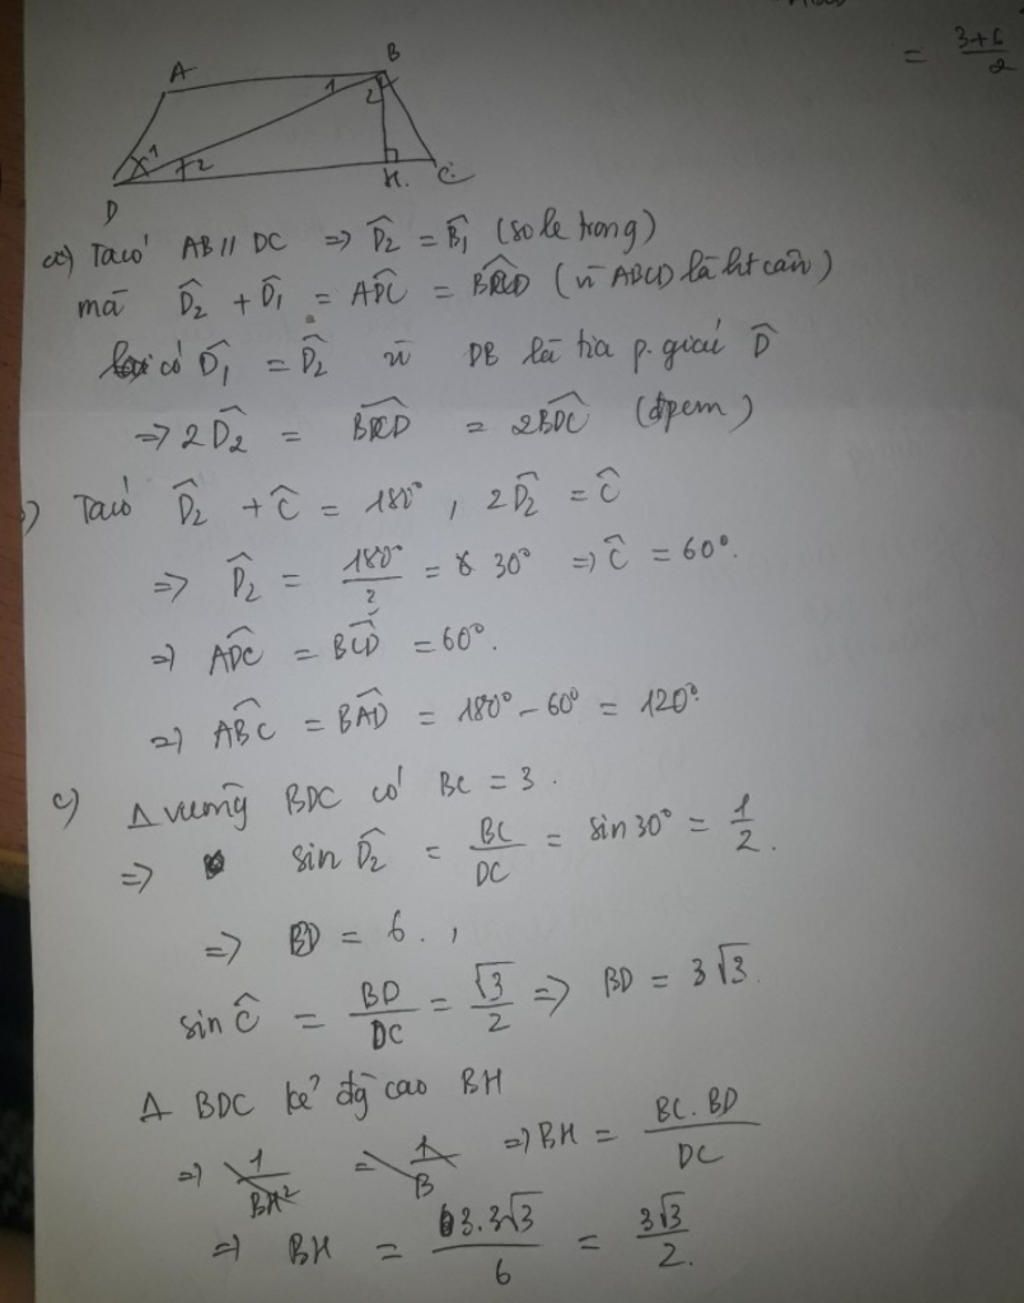 = \frac{3+6}{2}
A
B
1
2
1
2
H.
C
D
a) Ta có AB // DC => \widehat{D_2} = \widehat{B_1} (so le trong)
mà \widehat{D_2} + \widehat{D_1} = \widehat{ADC} = \widehat{BCD} (vì ABCD là ht cân)
có \widehat{D_1} = \widehat{D_2} vì DB là tia p. giác \widehat{D}
=> 2\widehat{D_2} = \widehat{BCD} = 2\widehat{BDC} (đpcm)
) Ta có \widehat{D_2} + \widehat{C} = 180°, 2\widehat{D_2} = \widehat{C}
=> \widehat{D_2} = \frac{180°}{} = 30° => \widehat{C} = 60°.
=> \widehat{ADC} = \widehat{BCD} = 60°.
=> \widehat{ABC} = \widehat{BAD} = 180° - 60° = 120°.
c) Δ vuông BDC có BC = 3.
=> sin \widehat{D_2} = \frac{BC}{DC} = sin 30° = \frac{1}{2}.
=> BD = 6.,
sin \widehat{C} = \frac{BD}{DC} = \frac{\sqrt{3}}{2} => BD = 3\sqrt{3}.
Δ BDC kẻ đg cao BH
=> \frac{1}{BH^2} = \frac{1}{B} => BH = \frac{BC.BD}{DC}
=> BH = \frac{3.3\sqrt{3}}{6} = \frac{3\sqrt{3}}{2}.